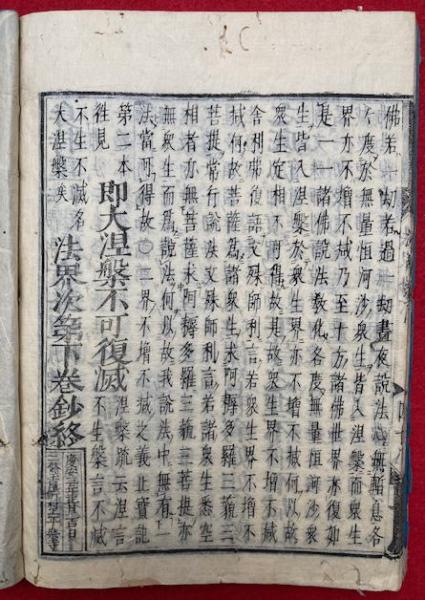 佛若一劫若過一劫晝夜說法心無暫息各
各度於無量恒河沙衆生皆入涅槃而衆生
界亦不增不減乃至十方諸佛世界亦復如
是一一諸佛說法敎化各度無量恒河沙衆
生皆入涅槃於衆生界亦不增不減何以故
衆生定相不可得故是故衆生界不增不減
舍利弗復語文殊師利言若衆生界不增不
減何故菩薩爲諸衆生求阿耨多羅三藐三
菩提常行說法文殊師利言若諸衆生悉空
相者亦無菩薩求阿耨多羅三藐三菩提亦
無衆生而爲說法何以故我說法中無有一
法當可得故 二界不增不減之義此寶記
第二本
往見 即大涅槃不可復滅 涅槃疏云涅言
不生槃言不滅
不生不滅名
大涅槃矣 法界次第下卷鈔終